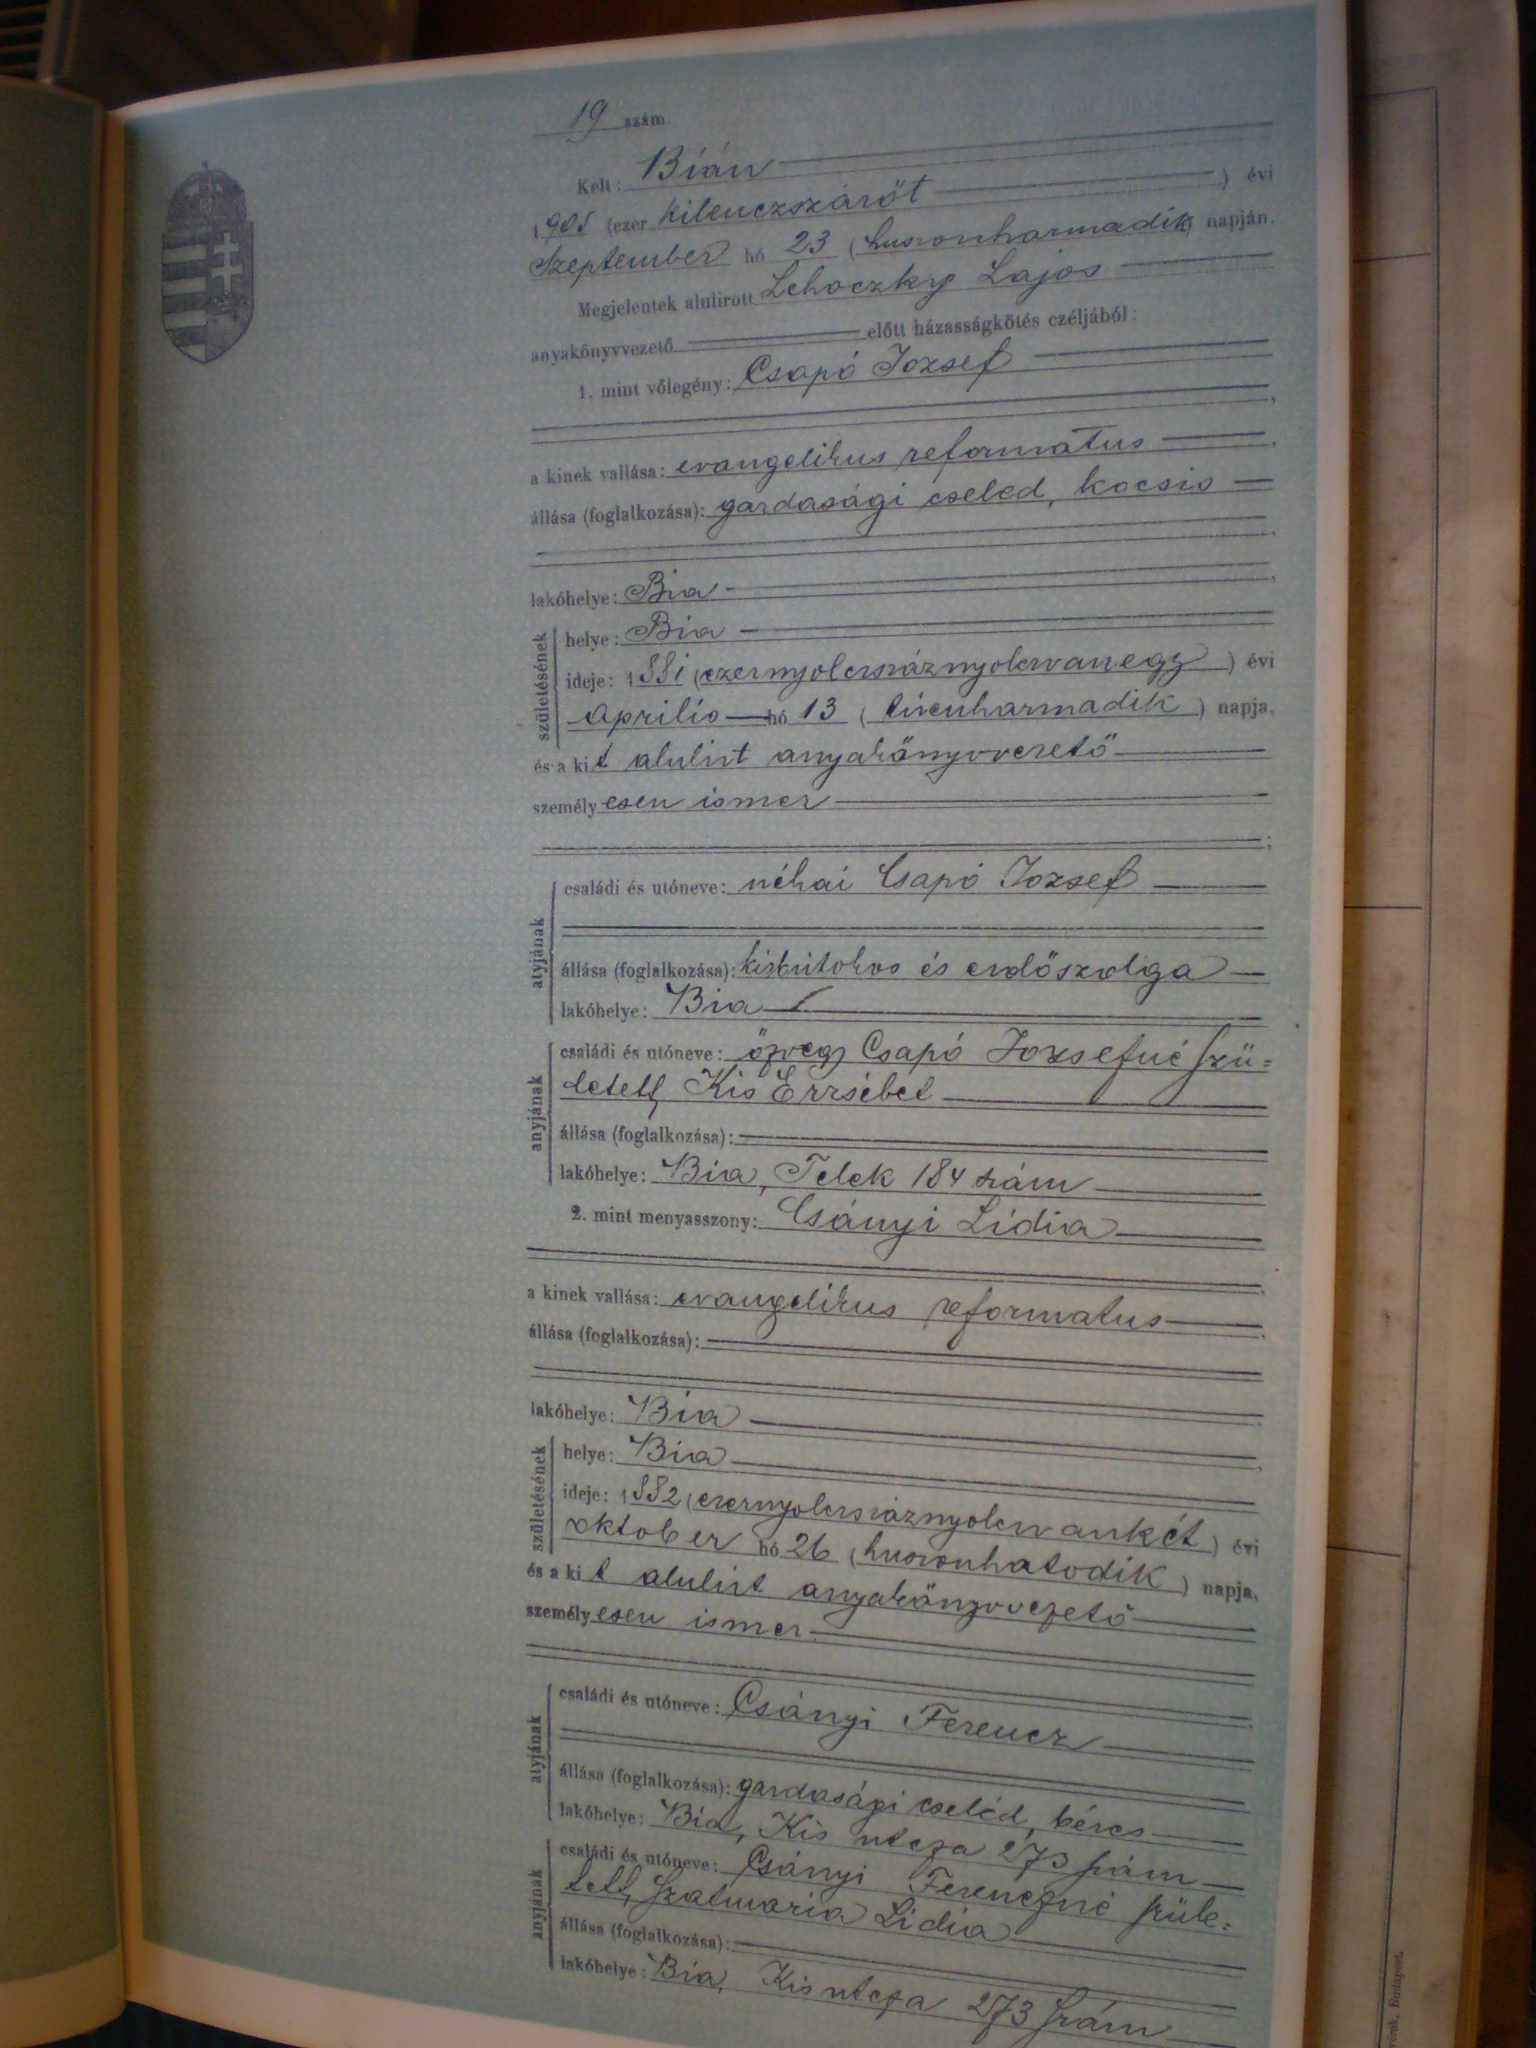 19 szám.
Kelt: Bián
1905 (ezer kilenczszázöt ) évi
Szeptember hó 23 (huszonharmadik) napján.
Megjelentek alulirott Lehoczky Lajos
anyakönyvvezető előtt házasságkötés czéljából:
1. mint vőlegény: Csapó Jozsef
a kinek vallása: evangelikus reformatus
állása (foglalkozása): gazdasági cseled, kocsis
lakóhelye: Bia
születésének
helye: Bia
ideje: 1881 (ezernyolcszáznyolcvanegy ) évi
aprilis hó 13 ( tizenharmadik ) napja,
és a kit alulirt anyakönyvvezető
személyesen ismer
atyjának
családi és utóneve: néhai Csapó Jozsef
állása (foglalkozása): kisbirtokos és erdőszolga
lakóhelye: Bia
anyjának
családi és utóneve: özvegy Csapó Jozsefné szü=
letett Kis Erzsébet
állása (foglalkozása):
lakóhelye: Bia, Telek 184 szám
2. mint menyasszony: Csányi Lidia
a kinek vallása: evangelikus reformatus
állása (foglalkozása):
lakóhelye: Bia
születésének
helye: Bia
ideje: 1882 (ezernyolcszáznyolcvankét ) évi
oktober hó 26 (huszonhatodik ) napja,
és a kit alulirt anyakönyvvezető
személyesen ismer
atyjának
családi és utóneve: Csányi Ferencz
állása (foglalkozása): gazdasági cseléd, béres
lakóhelye: Bia, Kis utcza 273 szám
anyjának
családi és utóneve: Csányi Ferenczné szüle=
tett Szatmaria Lidia
állása (foglalkozása):
lakóhelye: Bia, Kis utcza 273 szám
Budapest.